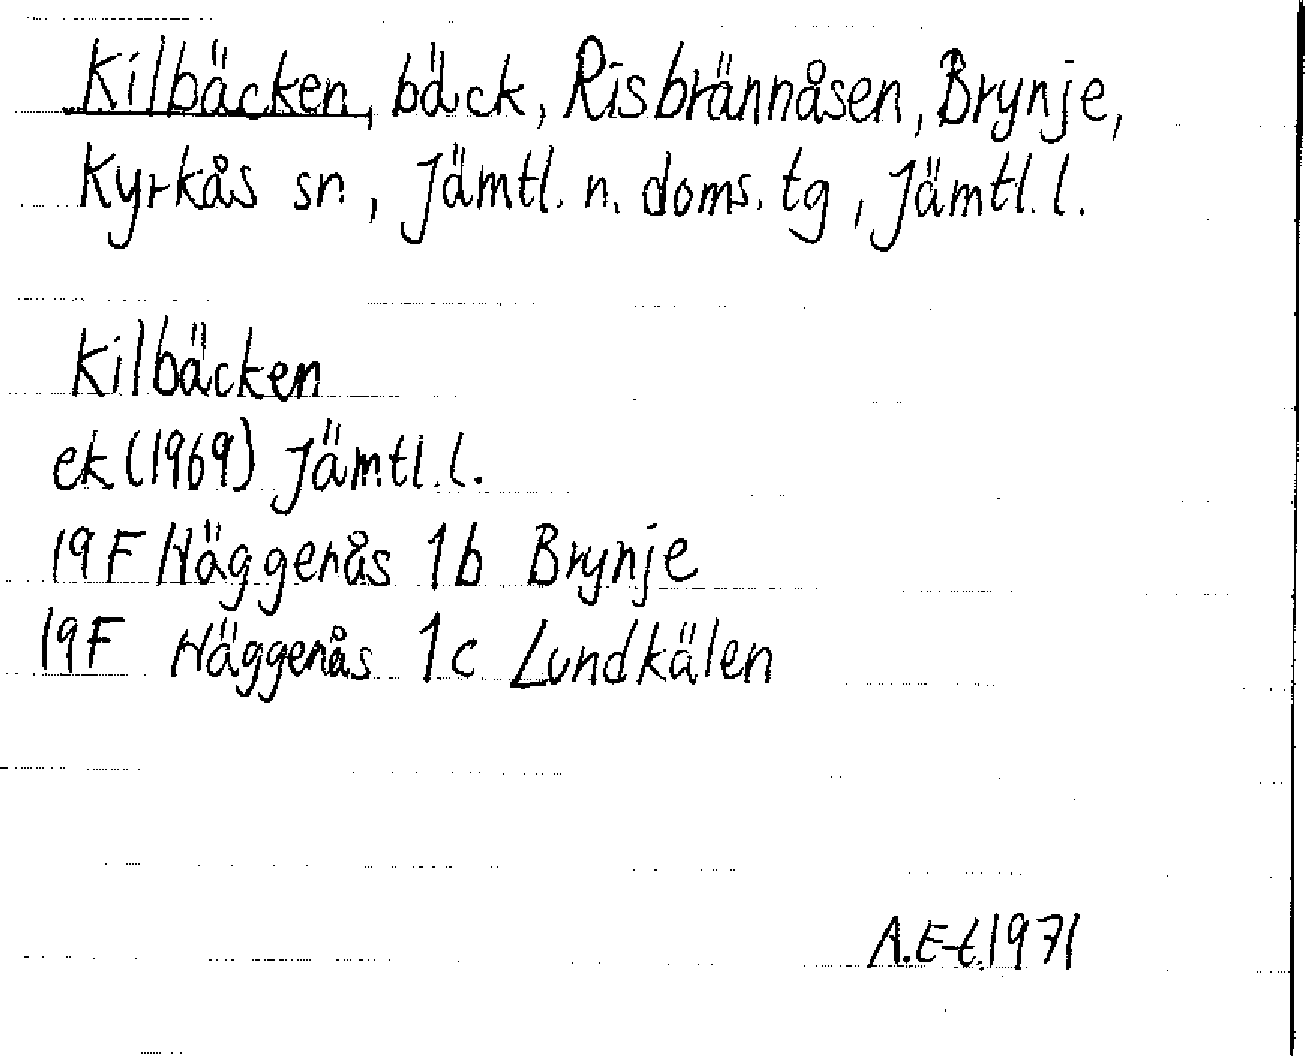 Kilbäcken, bäck, Risbrännåsen, Brynje,
Kyrkås sn, Jämtl. n. doms. tg, Jämtl. l.
Kilbäcken
ek (1969) Jämtl. l.
19 F Häggenås 1b Brynje
19F Häggenås 1c Lundkälen
A.E-t.1971